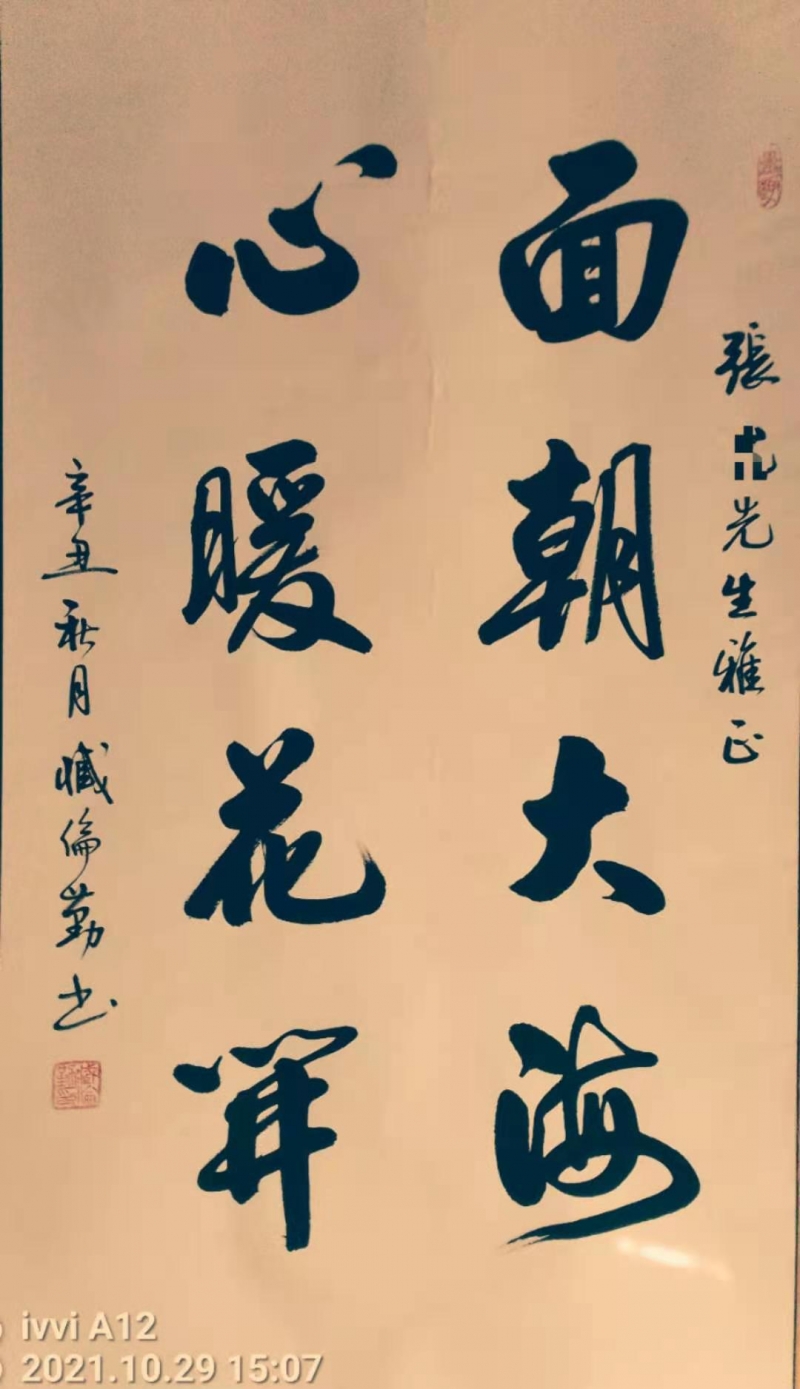 張 先生雅正
面朝大海
心暖花開
辛丑秋月臧倫勤书
ivvi A12
2021.10.29 15:07